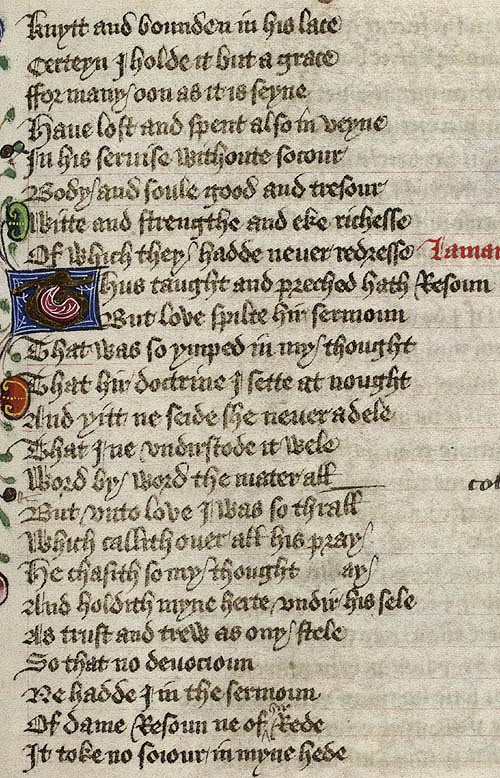 Knytt and bounden in his lace
Certeyn I holde it but a grace
ffor many oon as it is seyne
Haue lost and spent also in veyne
In his seruise withoute socour
Body and soule good and tresour
Witte and strengthe and eke richesse
Of which they hadde neuer redresse Lamau
Thus taught and preched hath Resoun
But love spilte hir sermoun
That was so ymped in my thought
That hir doctrine I sette at nought
And yitt ne seide she neuer a dele
That I ne vndirstode it wele
Word by word the mater all
But vnto love I was so thrall
Which callith ouer all his pray
He chasith so my thought ay
And holdith myne herte vndir his sele
As trust and trew as ony stele
So that no deuocioun
Ne hadde I in the sermoun
Of dame Resoun ne of hir Rede
It toke no soiour in myne hede